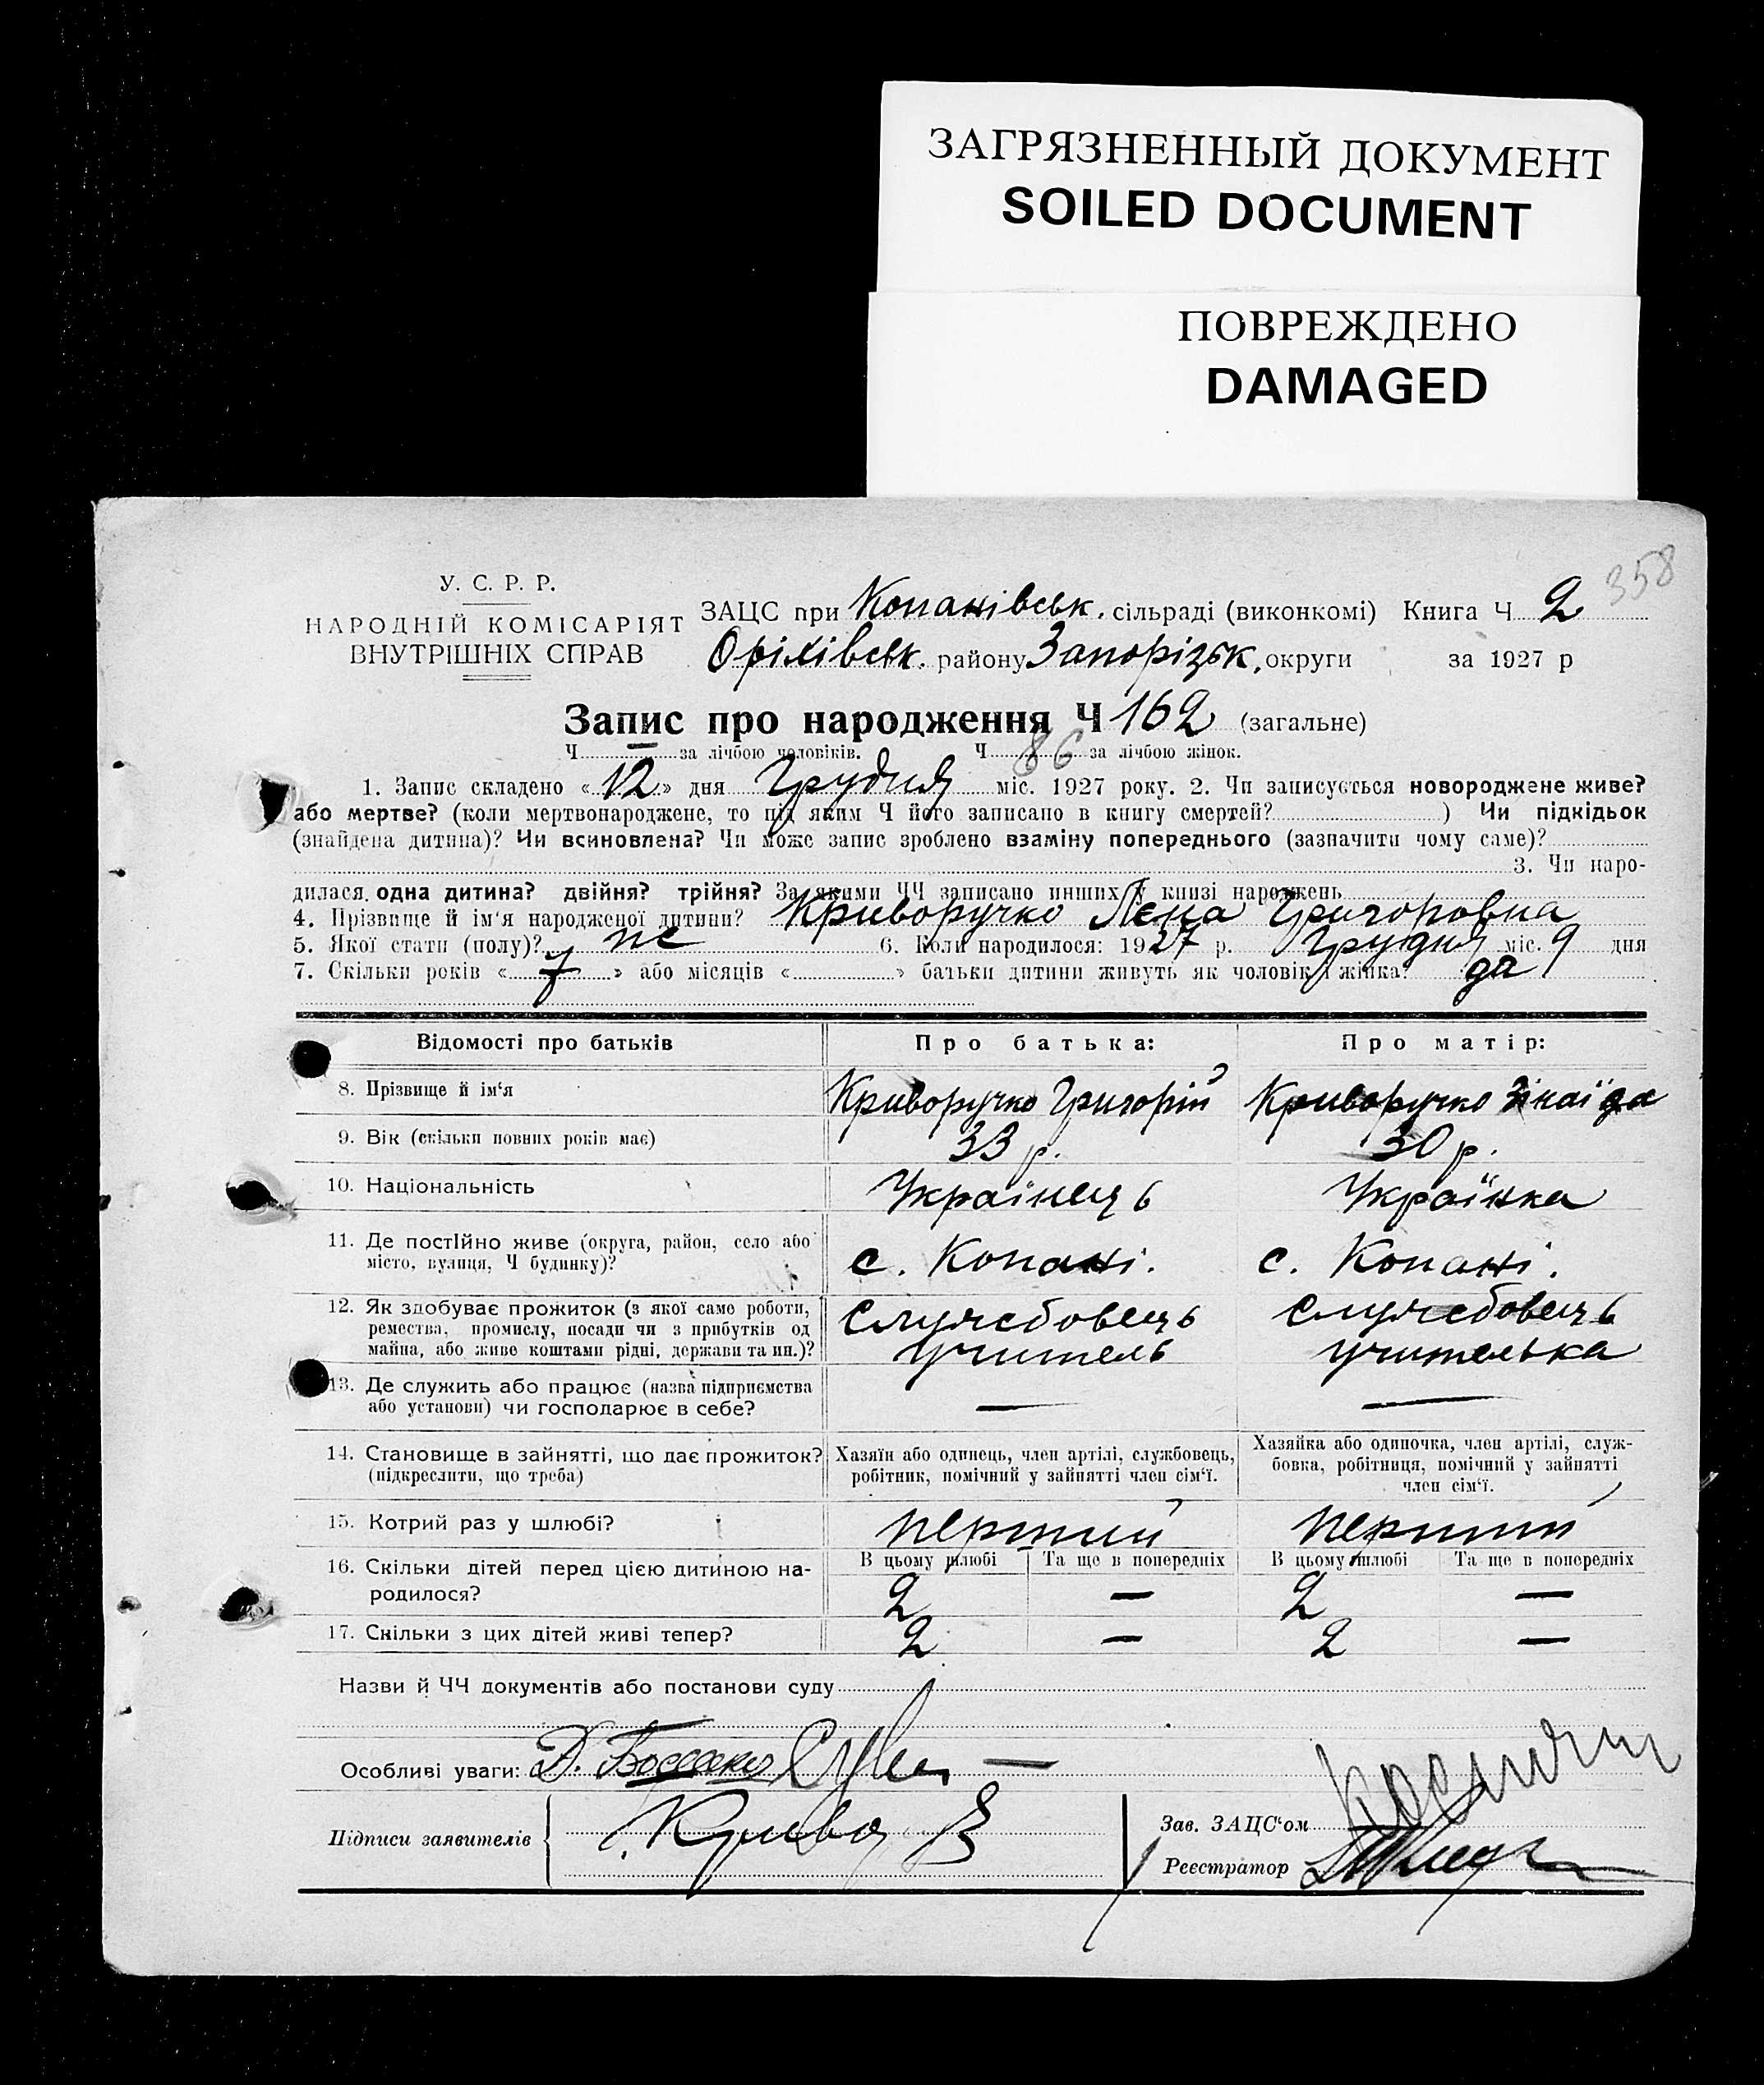 ЗАГРЯЗНЕННЫЙ ДОКУМЕНТ
SOILED DOCUMENT
ПОВРЕЖДЕНО
DAMAGED
358
У. С. Р. Р.
НАРОДНІЙ КОМІСАРІЯТ
ВНУТРІШНІХ СПРАВ
ЗАЦС при Копанівськ. сільраді (виконкомі) Книга Ч 2
Оріхівськ. району Запорізьк. округи за 1927 р
Запис про народження Ч 162 (загальне)
Ч — за лічбою чоловіків. Ч 86 за лічбою жінок.
1. Запис складено «12» дня Грудня міс. 1927 року. 2. Чи записується новороджене живе?
або мертве? (коли мертвонароджене, то під яким Ч його записано в книгу смертей? ) Чи підкідьок
(знайдена дитина)? Чи всиновлена? Чи може запис зроблено взаміну попереднього (зазначити чому саме)?
3. Чи наро-
дилася одна дитина? двійня? трійня? За якими ЧЧ записано инших у книзі народжень
4. Прізвище й ім'я народженої дитини? Криворучко Лєна Григоровна
5. Якої стати (полу)? ж 6. Коли народилося: 1927 р. Грудня міс. 9 дня
7. Скільки років «7» або місяців « » батьки дитини живуть як чоловік і жінка? да
Відомості про батьків
Про батька:
Про матір:
8. Прізвище й ім'я
Криворучко Григорій
Криворучко Зінаїда
9. Вік (скільки повних років має)
33 р.
30 р.
10. Національність
Українець
Українка
11. Де постІйно живе (округа, район, село або
місто, вулиця, Ч будинку)?
с. Копані.
с. Копані.
12. Як здобуває прожиток (з якої саме роботи,
ремества, промислу, посади чи з прибутків од
майна, або живе коштами рідні, держави та ин.)?
Службовець
учитель
Службовець
учителька
13. Де служить або працює (назва підприємства
або установи) чи господарює в себе?
—
—
14. Становище в зайнятті, що дає прожиток?
(підкреслити, що треба)
Хазяїн або одинець, член артілі, службовець,
робітник, помічний у зайнятті член сім'ї.
Хазяйка або одиночка, член артілі, служ-
бовка, робітниця, помічний у зайнятті
член сім'ї.
15. Котрий раз у шлюбі?
перший
перший
В цьому шлюбі Та ще в попередніх В цьому шлюбі Та ще в попередніх
16. Скільки дітей перед цією дитиною на-
родилося?
2 — 2 —
17. Скільки з цих дітей живі тепер?
2 — 2 —
Назви й ЧЧ документів або постанови суду
Особливі уваги:
Підписи заявителів
Зав. ЗАЦС'ом
Реєстратор